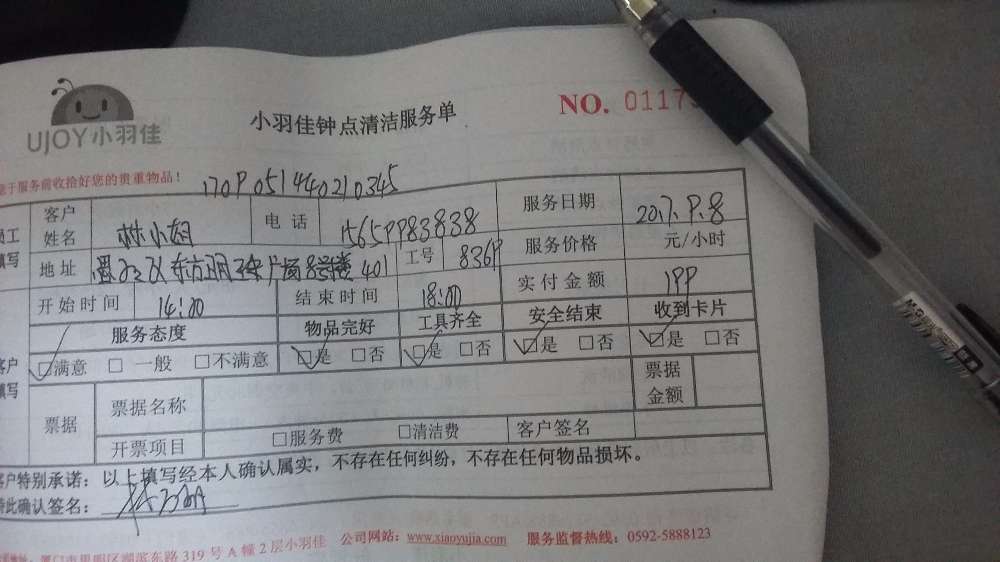 UJOY小羽佳
小羽佳钟点清洁服务单
NO. 01175
于服务前收拾好您的贵重物品!
1709051440210345
员工填写
客户姓名 林小姐 电话 15659983838 服务日期 2017.9.8
地址 东方明珠广场8号楼401 工号 8369 服务价格 元/小时
开始时间 14:00 结束时间 18:00 实付金额 199
服务态度 物品完好 工具齐全 安全结束 收到卡片
客户填写
☑满意 □一般 □不满意 ☑是 □否 ☑是 □否 ☑是 □否 ☑是 □否
票据 票据名称 票据金额
开票项目 □服务费 □清洁费 客户签名
客户特别承诺:以上填写经本人确认属实,不存在任何纠纷,不存在任何物品损坏。
特此确认签名:
厦门市思明区湖滨东路319号A幢2层小羽佳 公司网站:www.xiaoyujia.com 服务监督热线:0592-5888123